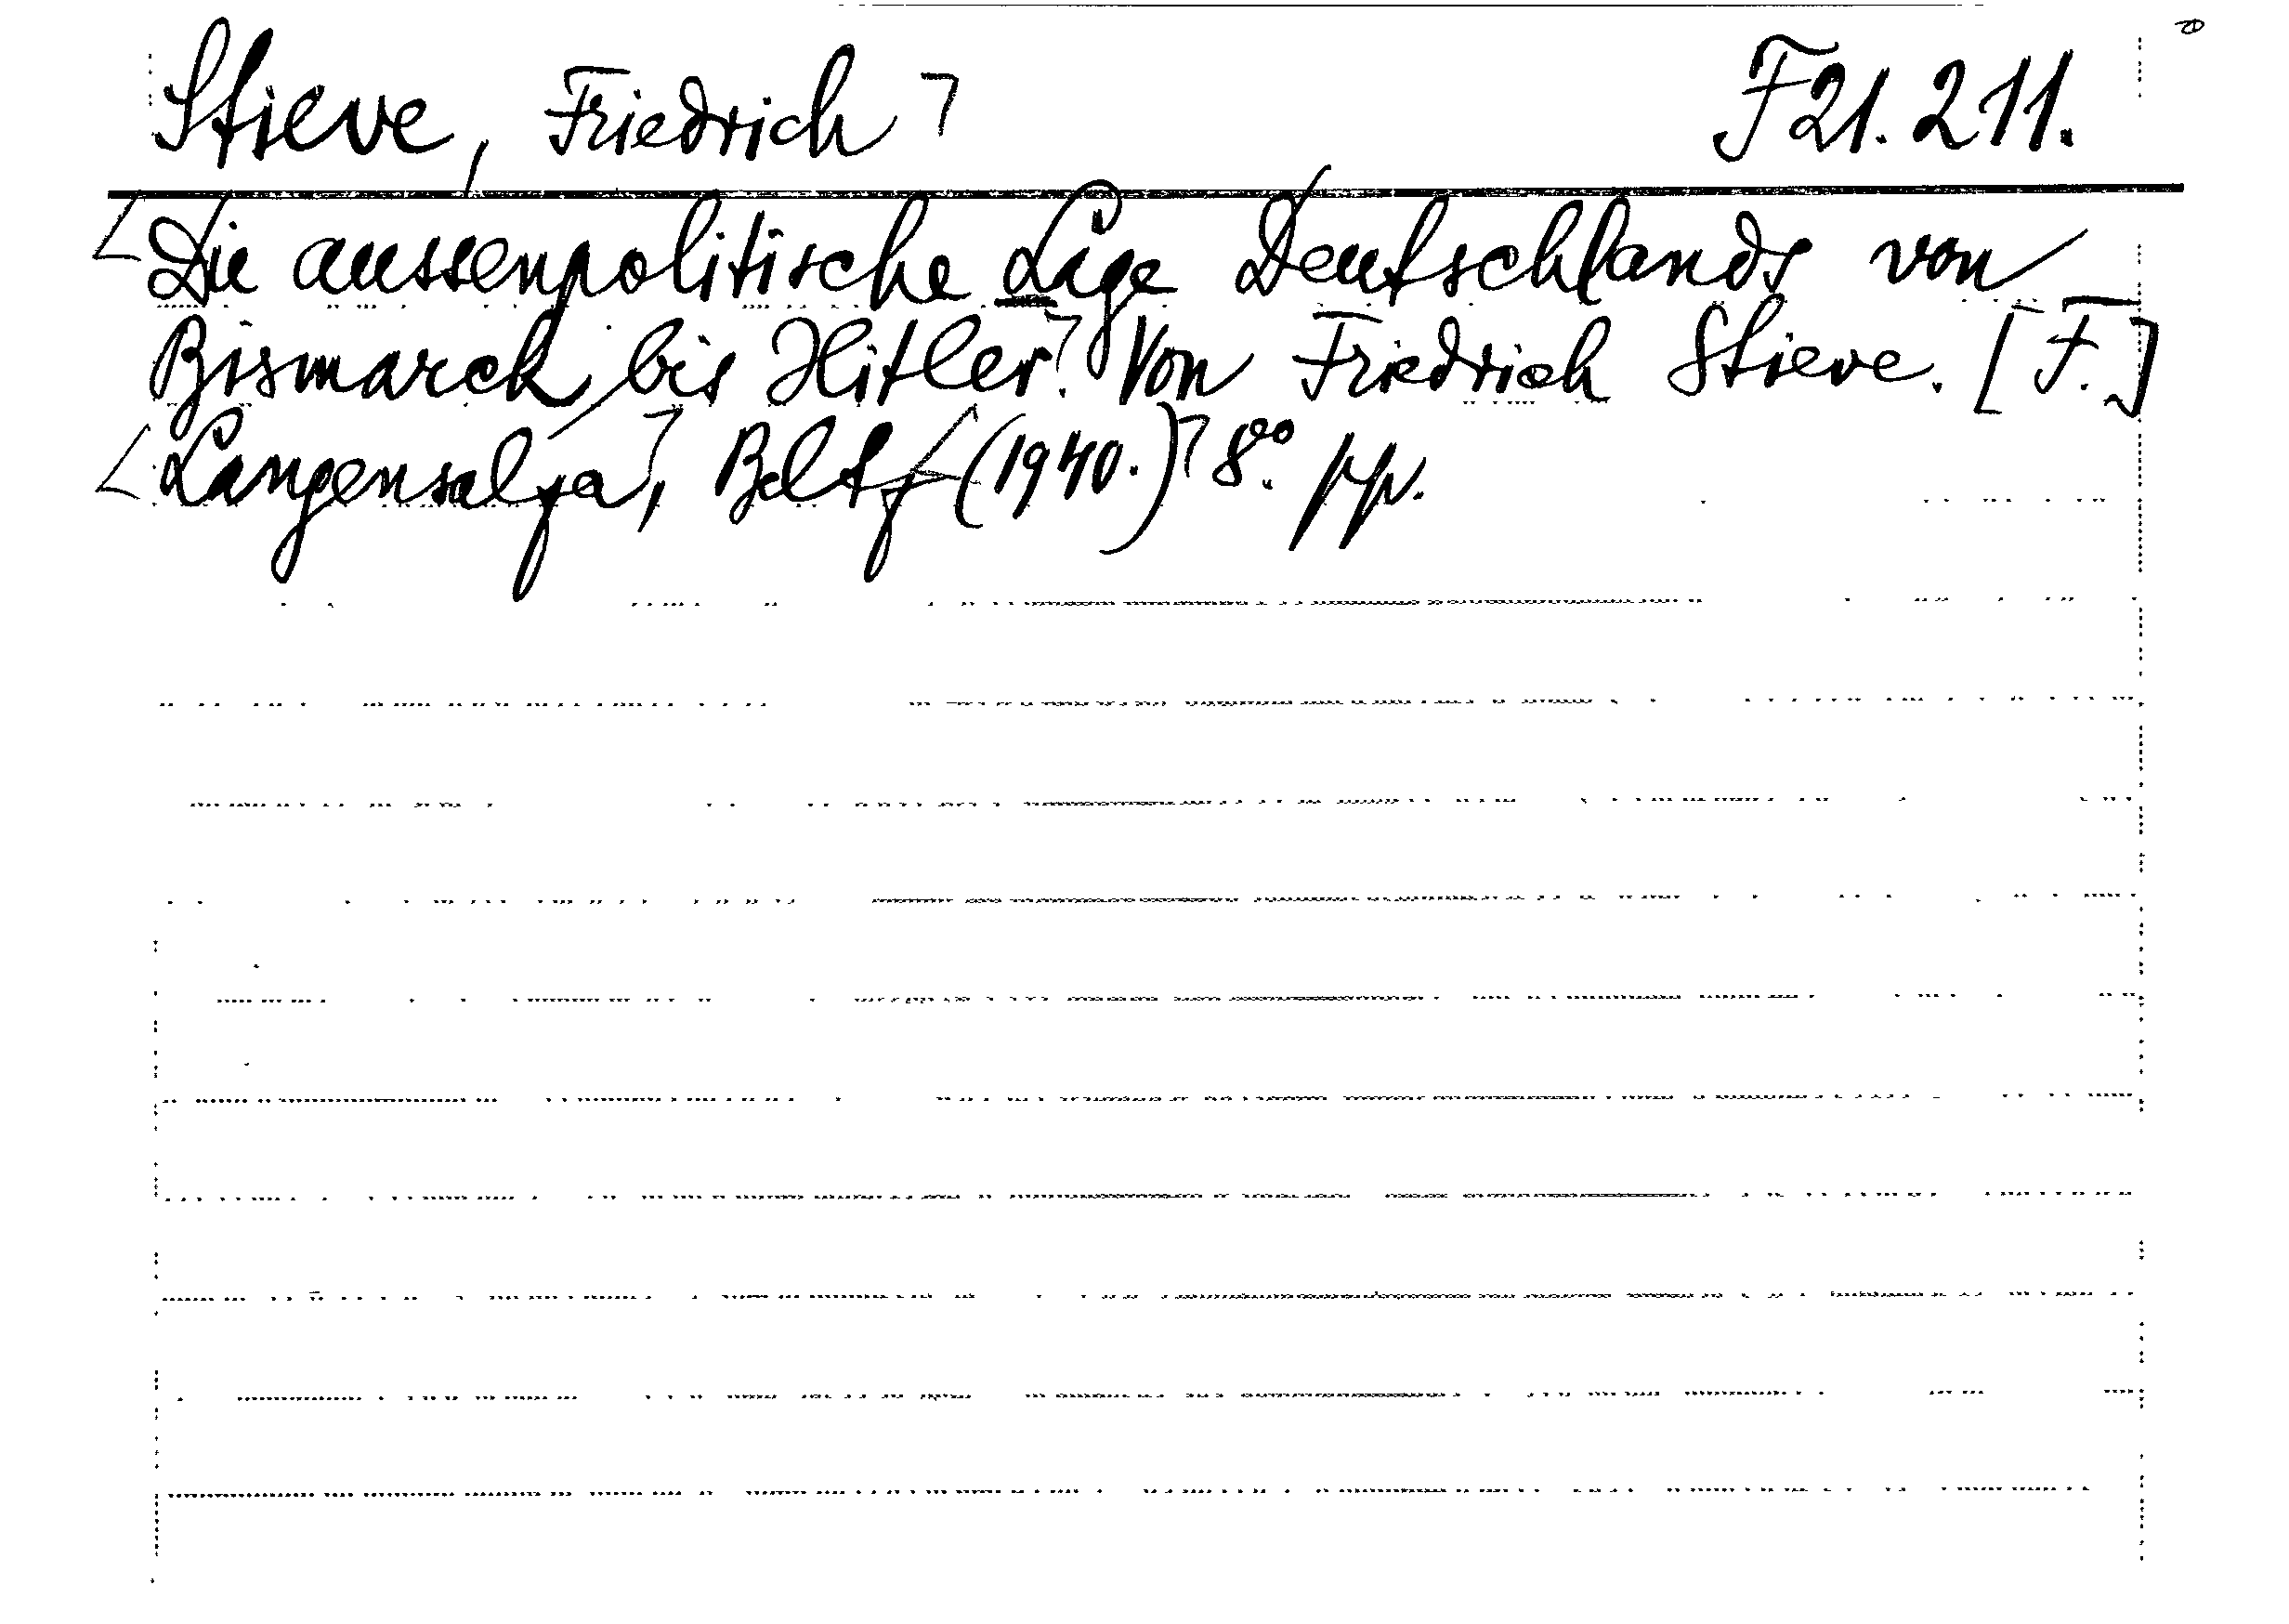 Stieve, Friedrich F 21.211.
Die aussenpolitische Lage Deutschlands von
Bismarck bis Hitler. Von Friedrich Stieve. [F.]
Langensalza, Beltz (1940.) 8°.